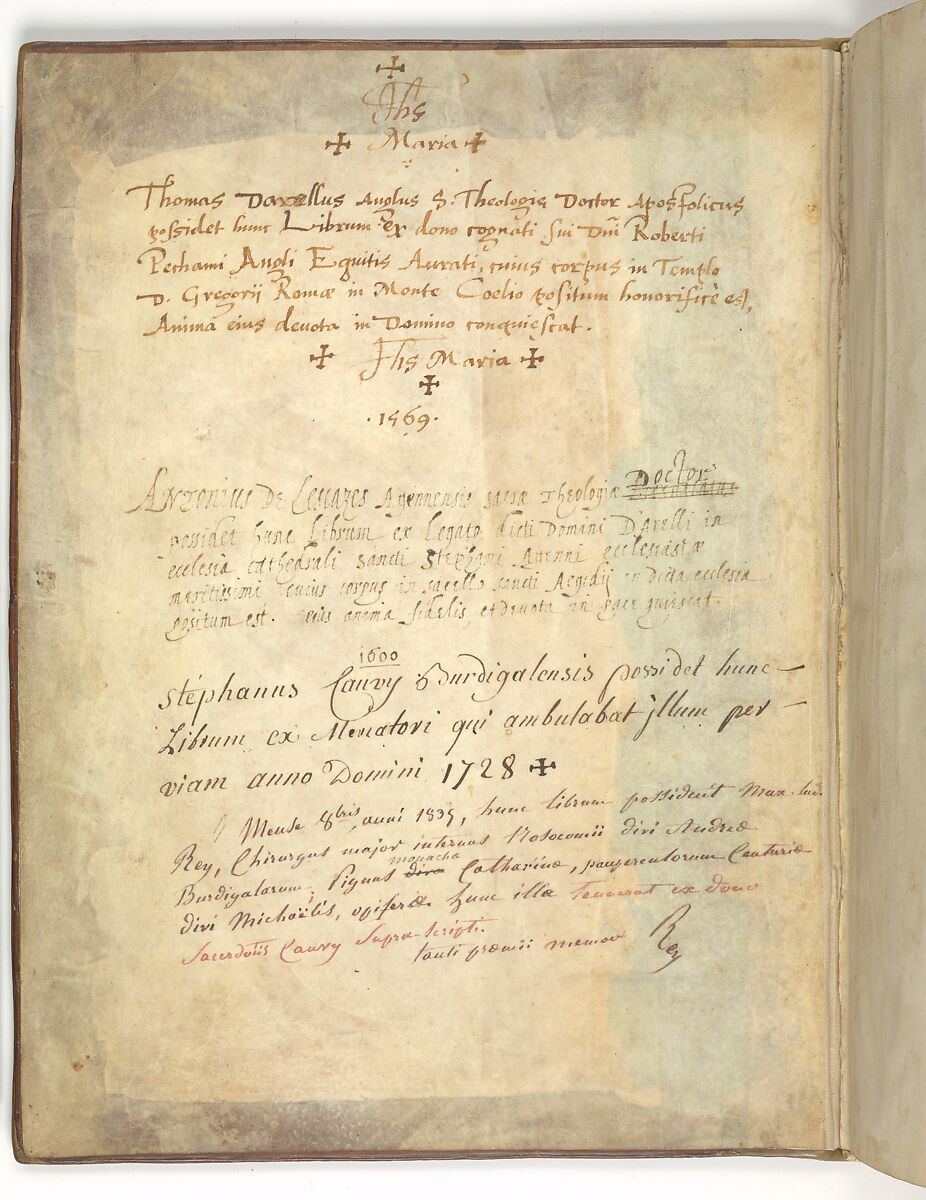 Jhs
Maria
Thomas Darellus Anglus S. Theologiæ Doctor Apostolicus
possidet hunc Librum ex dono cognati sui Dñi Roberti
Pechami Angli Equitis Aurati, cuius corpus in Templo
D. Gregorii Romæ in Monte Coelio positum honorificè est,
Anima eius devota in Domino conquiescat.
Jhs Maria
·1569·
Doctor
Antonius De Lescazes Agennensis sacræ Theologiæ
possidet hunc Librum ex Legato dicti Domini Darelli in
ecclesia cathedrali sancti Stephani Agenni ecclesiastæ
meritissimi cuius corpus in sacello sancti Aegidij in dicta ecclesia
positum est. eius anima fidelis, et devota in pace quiescat.
1600
Stéphanus Cauvy Burdigalensis possidet hunc
Librum ex Mercatori qui ambulabat jllum per
viam anno Domini 1728
Mense 8bris, anni 1839, hunc librum possiduit Max. Lud.
Rey, Chirurgus major internus Nosocomii divi Andreæ
monachæ
Burdigalorum; Pignus divæ Catharinæ, paupercularum Centuriæ
divi Michaëlis, opiferæ. Hunc illa tenuerat ex dono
Sacerdotis Cauvy Supra-Scripti.
tanti præmii memor Rey